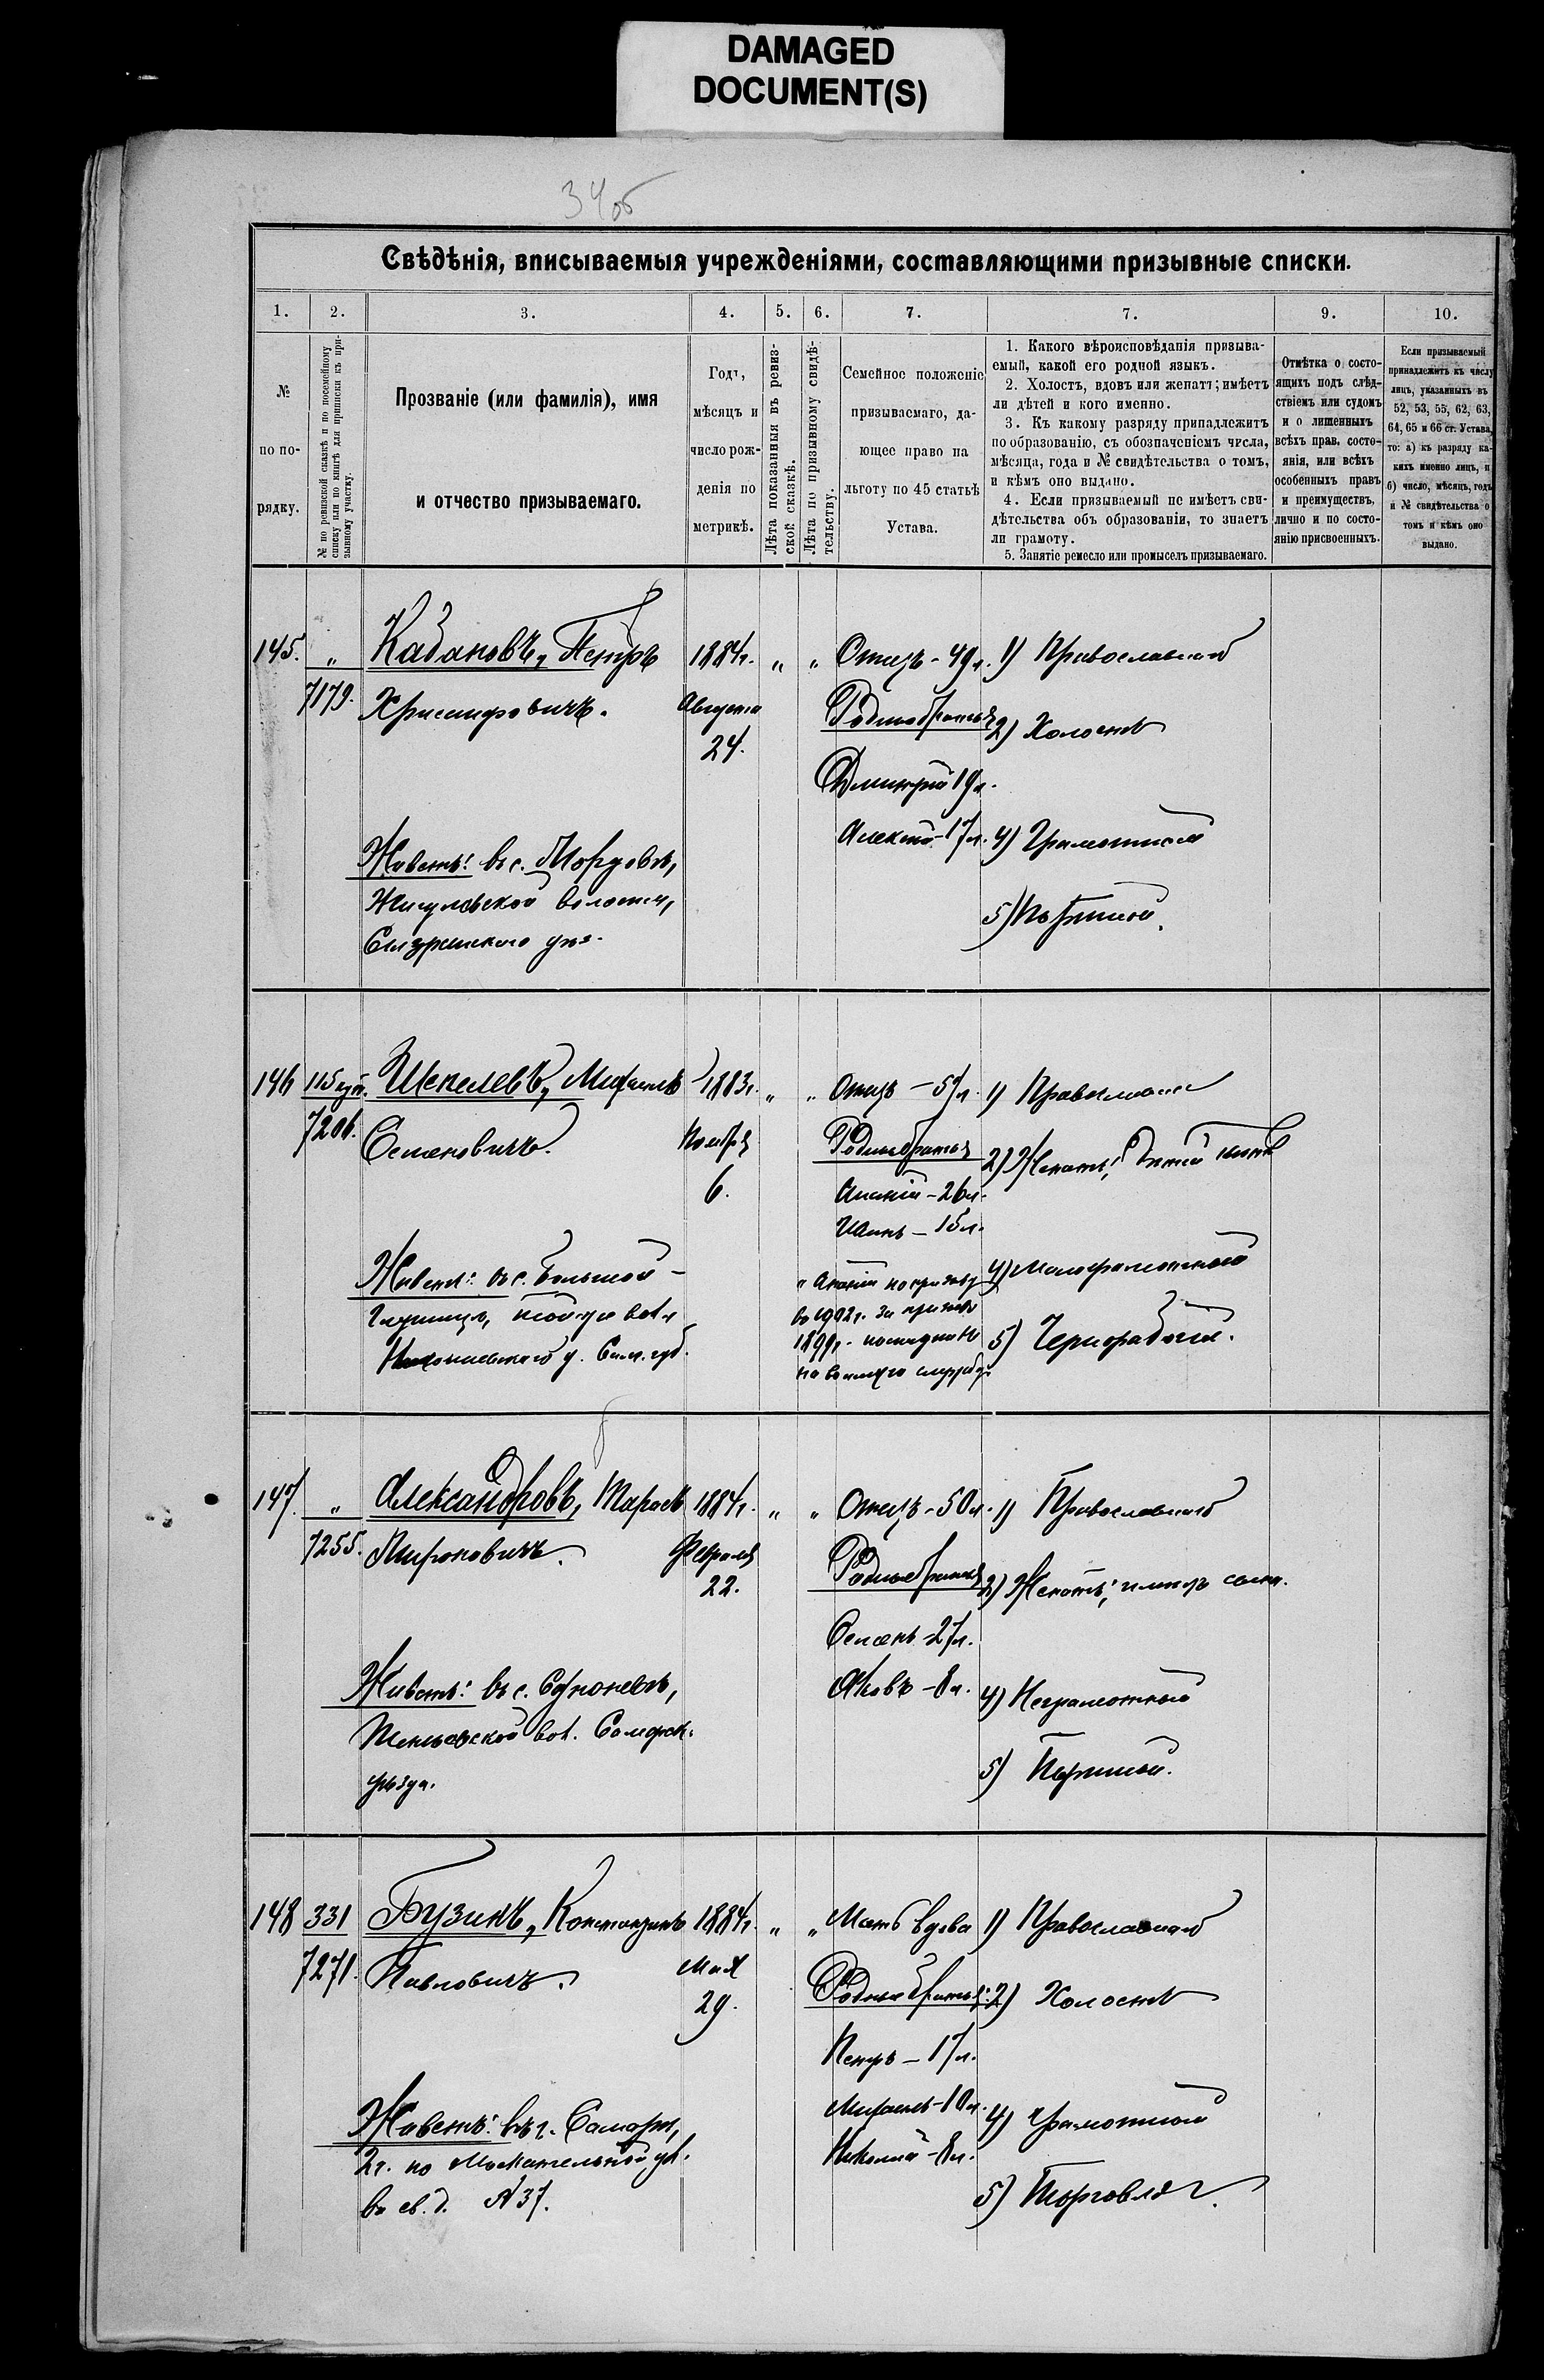 DAMAGED
DOCUMENT(S)
34об
Свѣдѣнія, вписываемыя учрежденіями, составляющими призывные списки.
1. 2. 3. 4. 5. 6. 7. 7. 9. 10.
№
по по-
рядку.
№ по ревизской сказкѣ и по посемейному
списку или по книгѣ для приписки къ при-
зывному участку.
Прозваніе (или фамилія), имя
и отчество призываемаго.
Годъ,
мѣсяцъ и
число рож-
денія по
метрикѣ.
Лѣта показанныя въ ревиз-
ской сказкѣ.
Лѣта по призывному свидѣ-
тельству.
Семейное положеніе
призываемаго, да-
ющее право на
льготу по 45 статьѣ
Устава.
1. Какого вѣроисповѣданія призыва-
емый, какой его родной языкъ.
2. Холостъ, вдовъ или женатъ; имѣетъ
ли дѣтей и кого именно.
3. Къ какому разряду принадлежитъ
по образованію, съ обозначеніемъ числа,
мѣсяца, года и № свидѣтельства о томъ,
и кѣмъ оно выдано.
4. Если призываемый не имѣетъ сви-
дѣтельства объ образованіи, то знаетъ
ли грамоту.
5. Занятіе ремесло или промыселъ призываемаго.
Отмѣтка о состо-
ящихъ подъ слѣд-
ствіемъ или судомъ
и о лишенныхъ
всѣхъ прав. состо-
янія, или всѣхъ
особенныхъ правъ
и преимуществъ,
лично и по состо-
янію присвоенныхъ.
Если призываемый
принадлежитъ къ числу
лицъ, указанныхъ въ
52, 53, 55, 62, 63,
64, 65 и 66 ст. Устава,
то: а) къ разряду ка-
кихъ именно лицъ, и
б) число, мѣсяцъ, годъ
и № свидѣтельства о
томъ и кѣмъ оно
выдано.
145. „ Кабановъ, Петръ 1884г. „ „ Отецъ - 49л. 1) Православный
7179. Хрисанфовичъ. Августа
24.
Родные братья
2) Холостъ
Дмитрій 19л.
Алексѣй - 17л. 4) Грамотный
Живетъ: въ с. Мордовѣ,
Жигулевской волости,
Сызранскаго уѣз.
5) Портной.
146 115 7206. Шепелевъ, Михаилъ 1883г. „ „ Отецъ - 1) Православный
Семеновичъ. Ноября
6.
Родные братья
2) Женатъ; дѣтей нѣтъ
Ананій - 26л.
Иванъ - 15л.
Живетъ: въ с. Большой -
Глушицѣ, той же вол.
Николаевскаго у. Сам. губ.
„ Ананій по призыву
въ 1902г. за призывъ
1899г.
на военную службу
4) Малограмотный
5) Чернорабочій.
147. „ Александровъ, Тарасъ 1884г. „ „ Отецъ - 50л. 1) Православный
7255. Мироновичъ. Февраля
22.
Родные братья
2) Женатъ; имѣетъ сына.
Семенъ - 27л.
Яковъ - 8л. 4) Неграмотный
Живетъ: въ с.
вол. Самарск.
уѣзда.
5) Портной.
148 331 Бузинъ, Константинъ 1884г. „ „ Мать вдова 1) Православный
7271. Павловичъ. Мая
29.
Родные братья: 2) Холостъ
Петръ - 17л.
Михаилъ - 10л. 4) Грамотный
Николай - 8л.
Живетъ: въ г. Самарѣ,
2ч. по Москательной ул.
въ св. д. № 37.
5) Торговля.